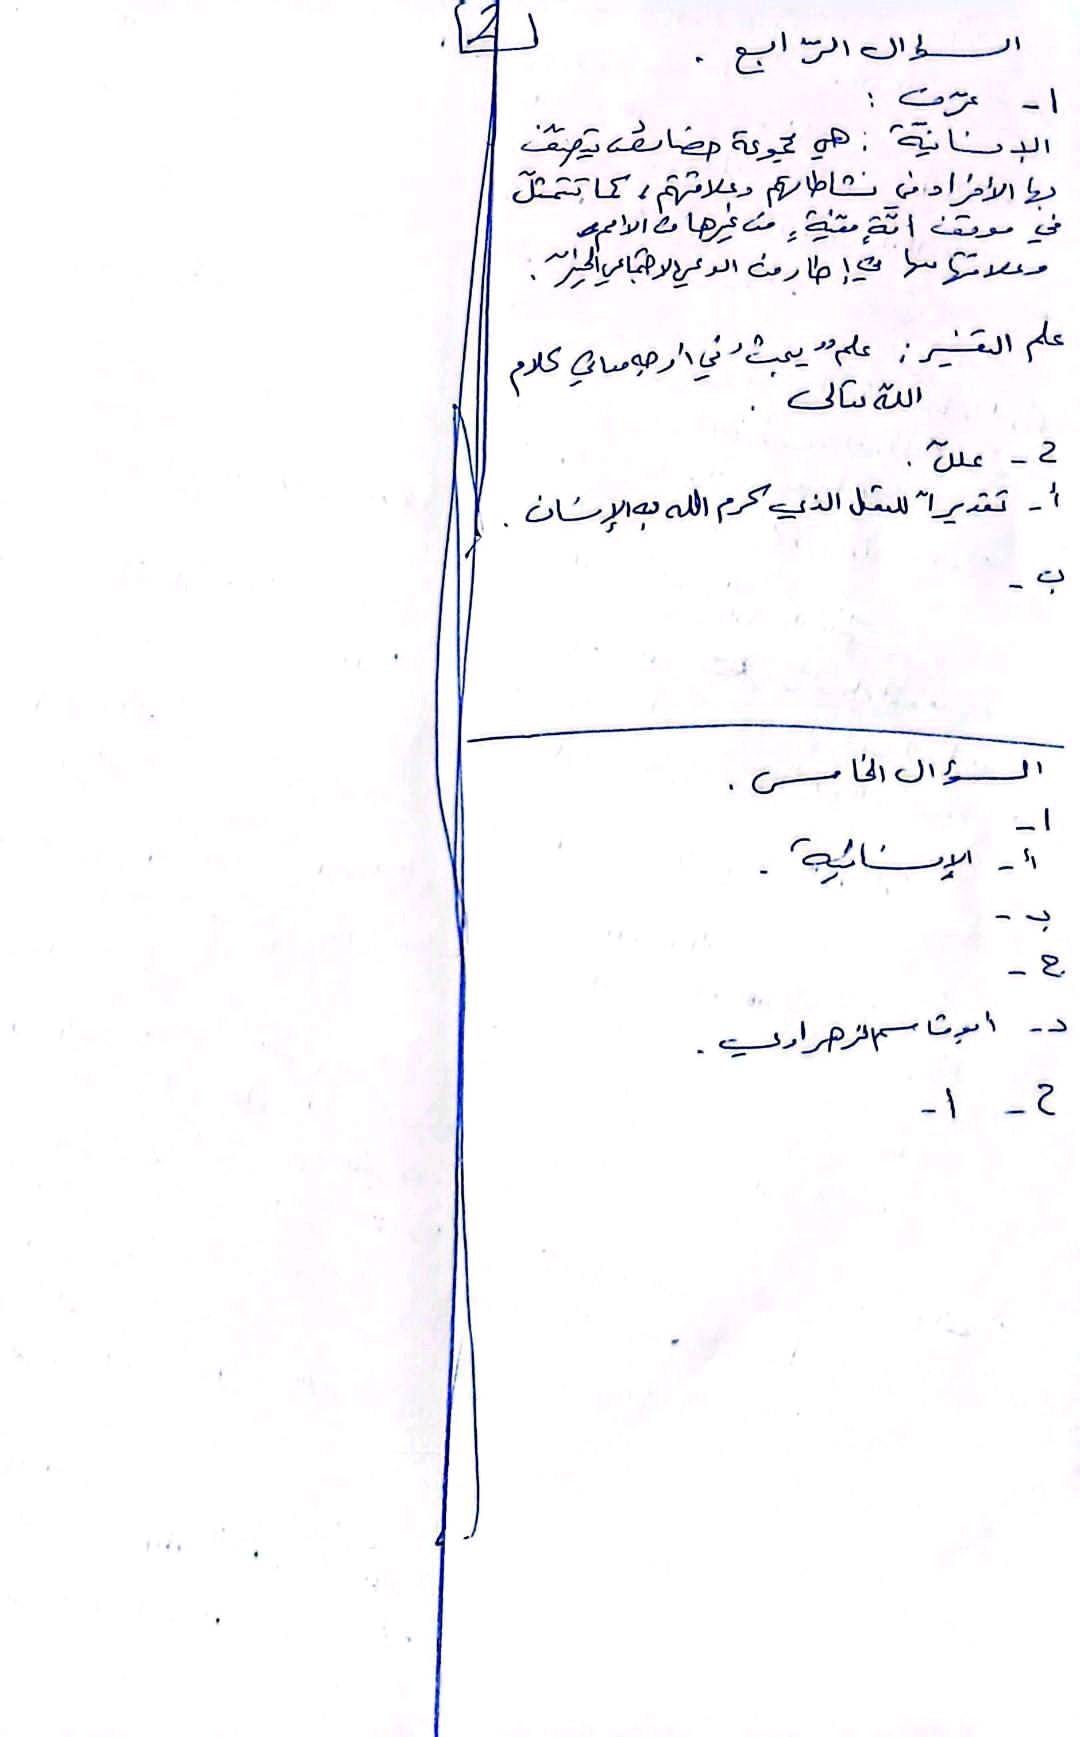 2
السؤال الرّابع .
1- عرّف :
الإنسانيّة : هي مجموعة خصائص يتصف
بها الأفراد في نشاطاتهم وعلاقتهم ، كما تتمثّل
في موقف أمّةٍ معيّنةٍ من غيرها من الأمم
وعلاقتها معها في إطار من الوعي الاجتماعي الخيّر .
علم التفسير : علم يبحث في أوجه معاني كلام
اللّه تعالى .
2- علّل .
أ- تقديراً للعقل الذي كرم الله به الإنسان .
ب -
السؤال الخامس .
1-
أ- الإنسانية .
ب -
ج -
د - ابو قاسم الزهراوي .
2 - 1-